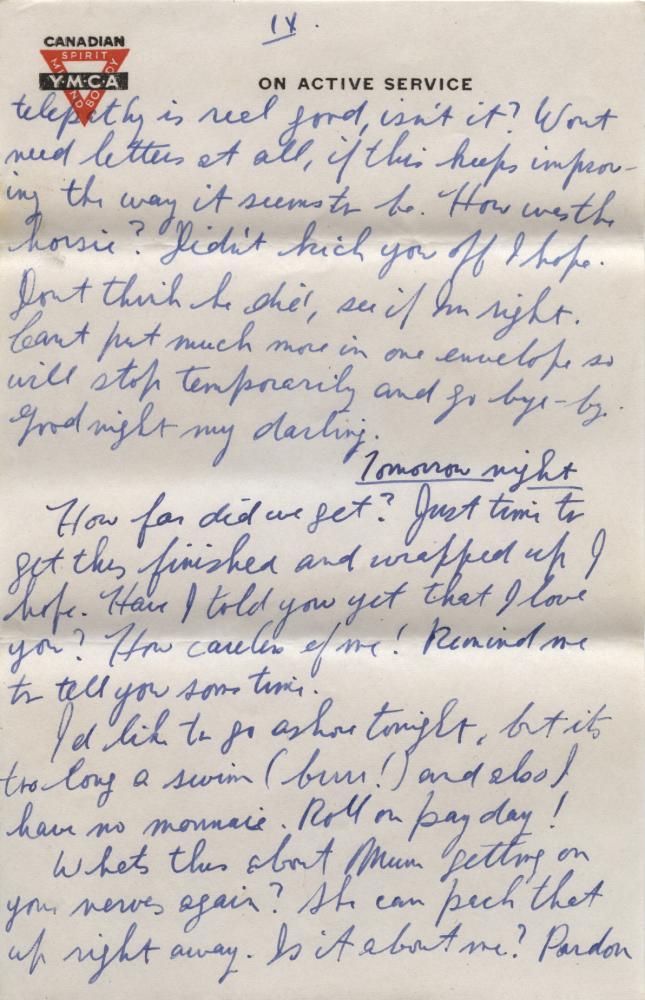 IV.
CANADIAN
SPIRIT
MIND
BODY
Y·M·C·A
ON ACTIVE SERVICE
telepathy is reel good, isn't it? Wont
need letters at all, if this keeps improv-
ing the way it seems to be. How was the
horsie? Didn't kick you off I hope.
Dont think he did, see if Im right.
Cant put much more in one envelope so
will stop temporarily and go bye-by.
Goodnight my darling.
Tomorrow night
How far did we get? Just time to
get this finished and wrapped up I
hope. Have I told you yet that I love
you? How careless of me! Remind me
to tell you some time.
I'd like to go ashore tonight, but its
too long a swim (burr!) and also I
have no monnaie. Roll on pay day!
Whats this about Mum getting on
your nerves again? She can pack that
up right away. Is it about me? Pardon